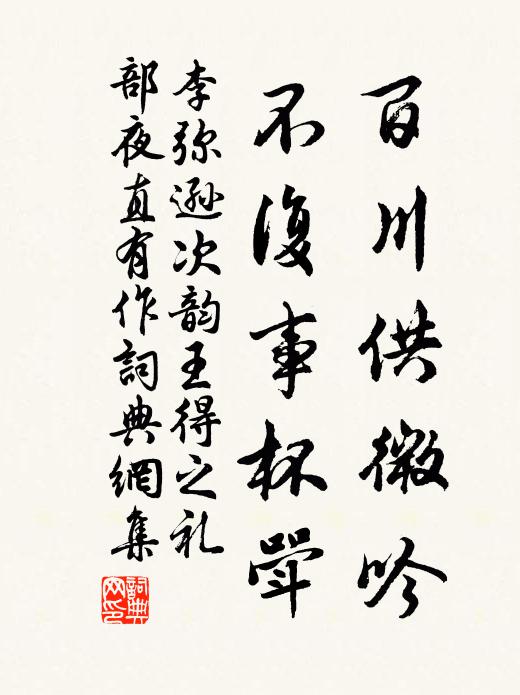 百川供微吟
不復事杯斝
李弥遜次韵王得之礼
部夜直有作詞典網集
詞典网印